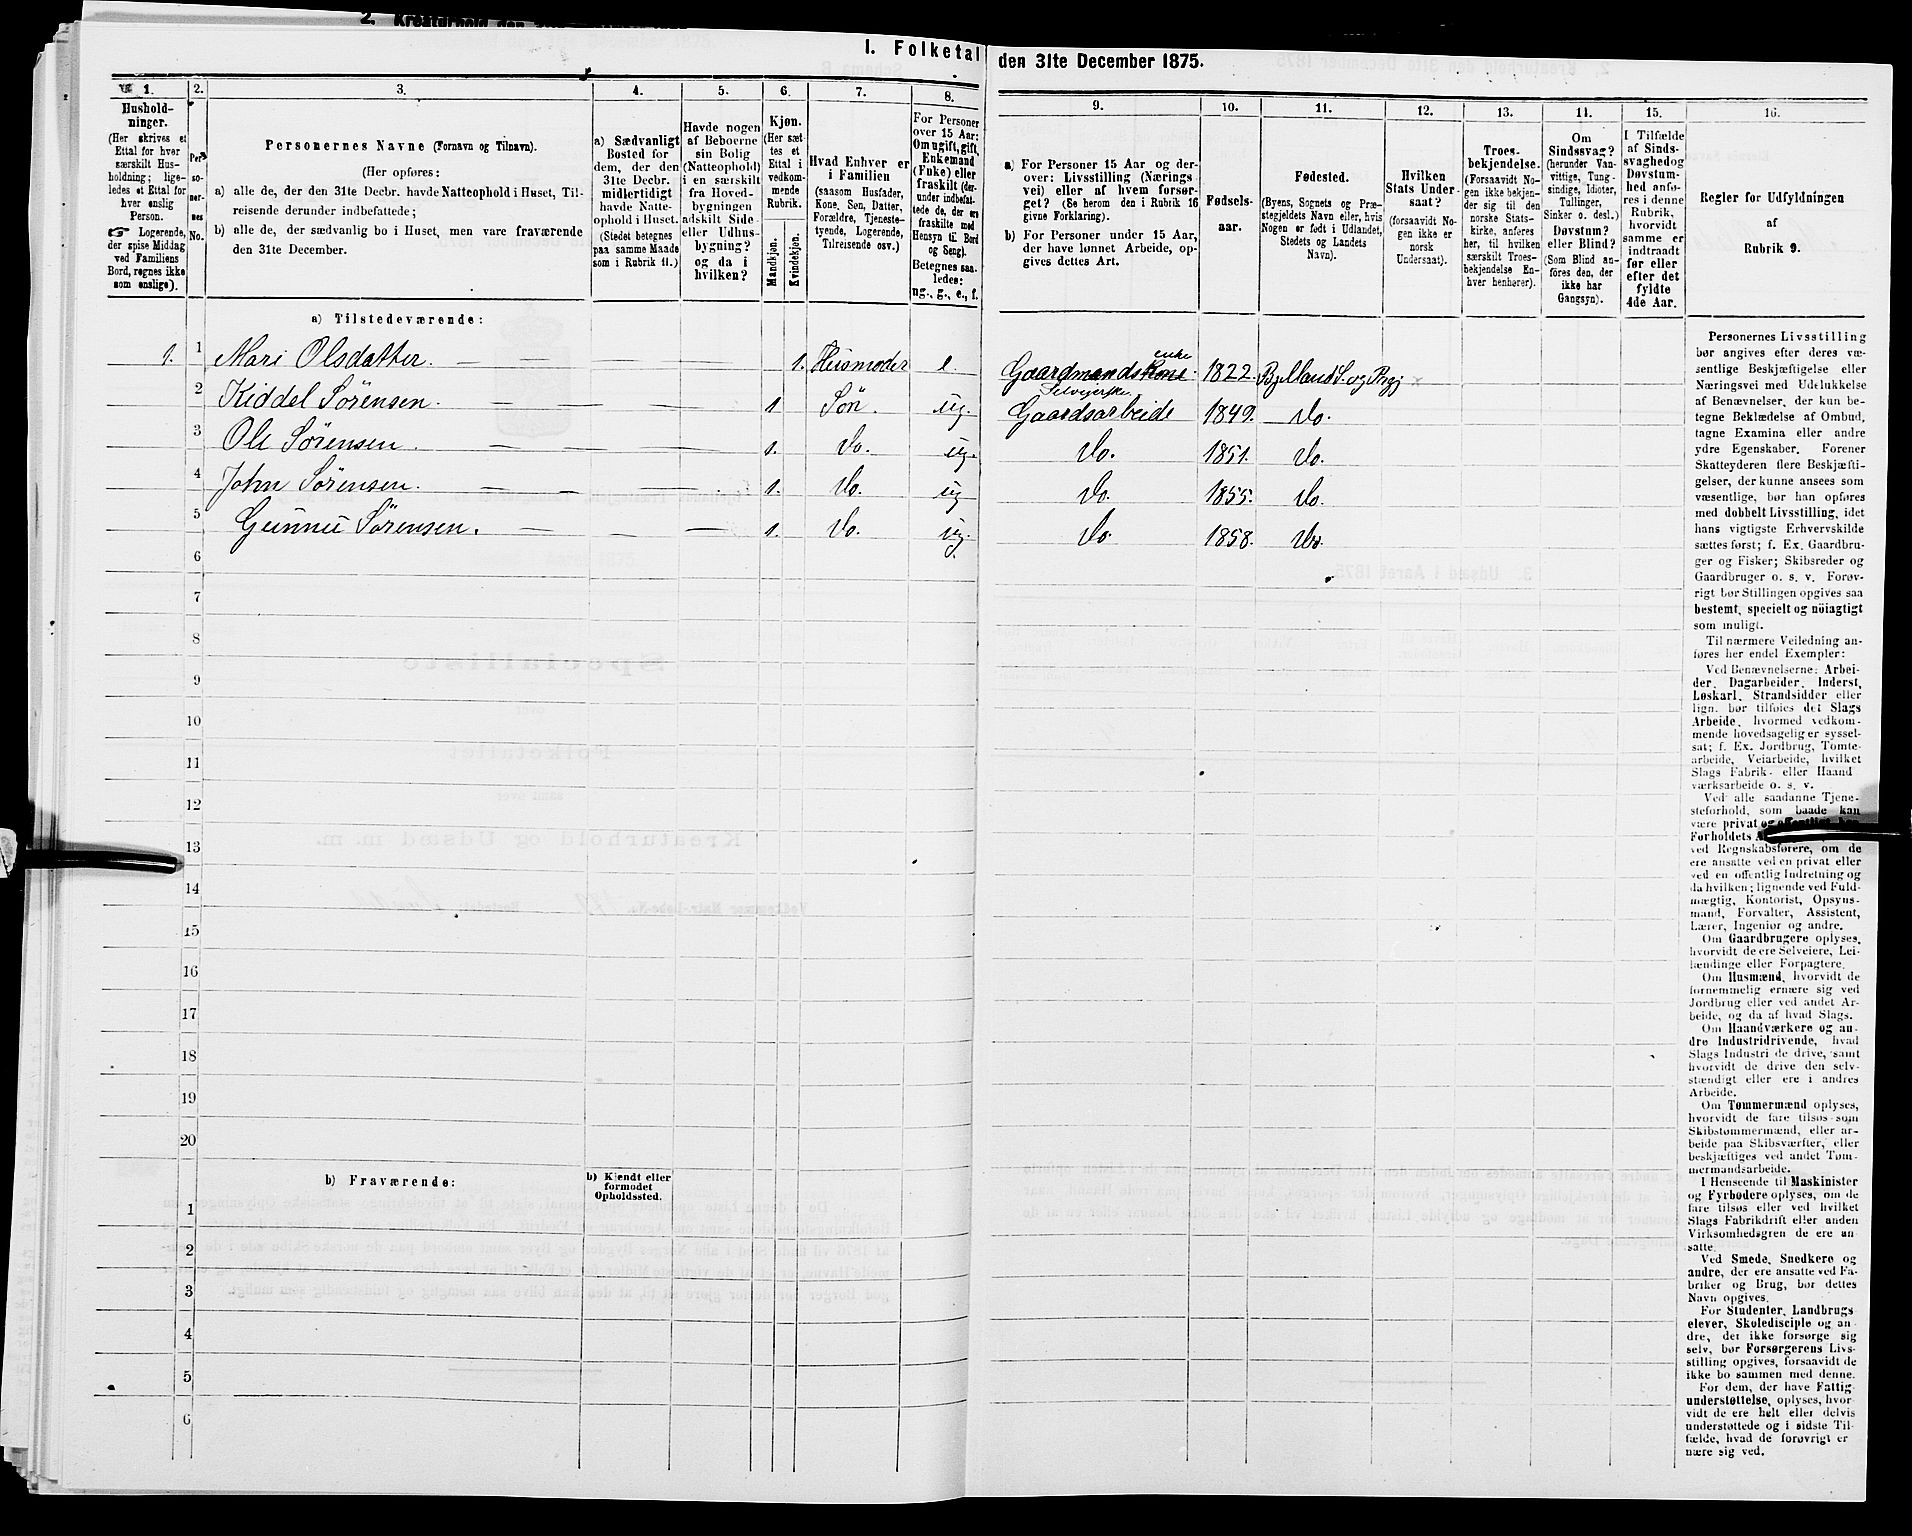 I. Folketal
den 31te December 1875.
1.
Hushold-
ninger.
(Her skrives et
Ettal for hver
særskilt Hus-
holdning; lige-
ledes et Ettal for
hver enslig
Person.
Logerende,
der spise Middag
ved Familiens
Bord, regnes ikke
som enslige).
2.
Per-
so-
ner-
nes
No.
3.
Personernes Navne (Fornavn og Tilnavn).
(Her opføres:
a) alle de, der den 31te Decbr. havde Natteophold i Huset, Til-
reisende derunder indbefattede;
b) alle de, der sædvanlig bo i Huset, men vare fraværende
den 31te December.
4.
a) Sædvanligt
Bosted for
dem, der den
31te Decbr.
midlertidigt
havde Natte-
ophold i Huset.
(Stedet betegnes
paa samme Maade
som i Rubrik 11.)
5.
Havde nogen
af Beboerne
sin Bolig
(Natteophold)
i en særskilt
fra Hoved-
bygningen
adskilt Side-
eller Udhus-
bygning?
og da i
hvilken?
6.
Kjøn.
(Her sæt-
tes et
Ettal i
vedkom-
mende
Rubrik.
Mandkjøn.
Kvindekjøn.
7.
Hvad Enhver er
i Familien
(saasom Husfader,
Kone, Søn, Datter,
Forældre, Tjeneste-
tyende, Logerende,
Tilreisende osv.)
8.
For Personer
over 15 Aar:
Om ugift, gift,
Enkemand
(Enke) eller
fraskilt (der-
under indbefat-
tede de, der ere
fraskilte med
Hensyn til Bord
og Seng).
Betegnes saa-
ledes:
ug., g., e., f.
9.
a) For Personer 15 Aar og der-
over: Livsstilling (Nærings-
vei) eller af hvem forsør-
get? (Se herom den i Rubrik 16
givne Forklaring).
b) For Personer under 15 Aar,
der have lønnet Arbeide, op-
gives dettes Art.
10.
Fødsels-
aar.
11.
Fødested.
(Byens, Sognets og Præ-
stegjeldets Navn eller, hvis
Nogen er født i Udlandet,
Stedets og Landets
Navn).
12.
Hvilken
Stats Under-
saat?
(forsaavidt No-
gen ikke er
norsk
Undersaat).
13.
Troes-
bekjendelse.
(Forsaavidt No-
gen ikke bekjen-
der sig til den
norske Stats-
kirke, anføres
her, til hvilken
særskilt Troes-
bekjendelse En-
hver henhører).
14.
Om
Sindssvag?
(herunder Van-
vittige, Tung-
sindige, Idioter,
Tullinger,
Sinker o. desl.)
Døvstum?
eller Blind?
(Som Blind an-
føres den, der
ikke har
Gangsyn).
15.
I Tilfælde
af Sinds-
svaghed og
Døvstum-
hed anfø-
res i denne
Rubrik,
hvorvidt
samme er
indtraadt
før eller
efter det
fyldte
4de Aar.
16.
Regler for Udfyldningen
af
Rubrik 9.
a) Tilstedeværende:
1. 1 Mari Olsdatter. — — — 1. Husmoder e. Gaardmandskone enke 1822. Bjelland S. og Prgj
2 Kiddel Sörensen. — — — 1 Sön. ug. Selveierske Gaardsarbeide 1849. Do.
3 Ole Sörensen. — — — 1. Do. ug. Do. 1851. Do.
4 John Sörensen. — — — 1. Do. ug Do. 1855. Do.
5 Gunnu Sörensen. — — — 1. Do. ug. Do. 1858. Do.
6
7
8
9
10
11
12
13
14
15
16
17
18
19
20
b) Fraværende:
b) Kjendt eller
formodet
Opholdssted.
1
2
3
4
5
6
Personernes Livsstilling
bør angives efter deres væ-
sentlige Beskjæftigelse eller
Næringsvei med Udelukkelse
af Benævnelser, der kun be-
tegne Beklædelse af Ombud,
tagne Examina eller andre
ydre Egenskaber. Forener
Skatteyderen flere Beskjæfti-
gelser, der kunne ansees som
væsentlige, bør han opføres
med dobbelt Livsstilling, idet
hans vigtigste Erhvervskilde
sættes først; f. Ex. Gaardbru-
ger og Fisker; Skibsreder og
Gaardbruger o. s. v. Forøv-
rigt bør Stillingen opgives saa
bestemt, specielt og nöiagtigt
som muligt.
Til nærmere Veiledning an-
føres her endel Exempler:
Ved Benævnelserne: Arbei-
der, Dagarbeider, Inderst,
Løskarl, Strandsidder eller
lign. bør tilføies det Slags
Arbeide, hvormed vedkom-
mende hovedsagelig er syssel-
sat; f. Ex. Jordbrug, Tomte-
arbeide, Veiarbeide, hvilket
Slags Fabrik- eller Haand
værksarbeide o. s. v.
Ved alle saadanne Tjene-
steforhold, som baade kan
være privat og offentligt, bør
Forholdets
ved Regnskabsførere, om de
ere ansatte ved en privat eller
ved en offentlig Indretning og
da hvilken; lignende ved Fuld-
mægtig, Kontorist, Opsyns-
mand, Forvalter, Assistent,
Lærer, Ingeniør og andre.
Om Gaardbrugere oplyses,
hvorvidt de ere Selveiere, Lei-
lændinge eller Forpagtere.
Om Husmænd, hvorvidt de
fornemmelig ernære sig ved
Jordbrug eller ved andet Ar-
beide, og da af hvad Slags.
Om Haandværkere og an-
dre Industridrivende, hvad
Slags Industri de drive, samt
hvorvidt de drive den selv-
stændigt eller ere i andres
Arbeide.
Om Tømmermænd oplyses,
hvorvidt de fare tilsøs som
Skibstømmermænd, eller ar-
beide paa Skibsværfter, eller
beskjæftiges ved andet Tøm-
mermandsarbeide.
I Henseende til Maskinister
og Fyrbødere oplyses, om de
fare tilsøs eller ved hvilket
Slags Fabrikdrift eller anden
Virksomhedsgren de ere an-
satte.
Ved Smede, Snedkere og
andre, der ere ansatte ved Fa-
briker og Brug, bør dettes
Navn opgives.
For Studenter, Landbrugs
elever, Skoledisciple og an-
dre, der ikke forsørge sig
selv, bør Forsørgerens Livs-
stilling opgives, forsaavidt de
ikke bo sammen med denne.
For dem, der have Fattig-
understøttelse, oplyses, hvor-
vidt de ere helt eller delvis
understøttede og i sidste Til-
fælde, hvad de forøvrigt er
nære sig ved.